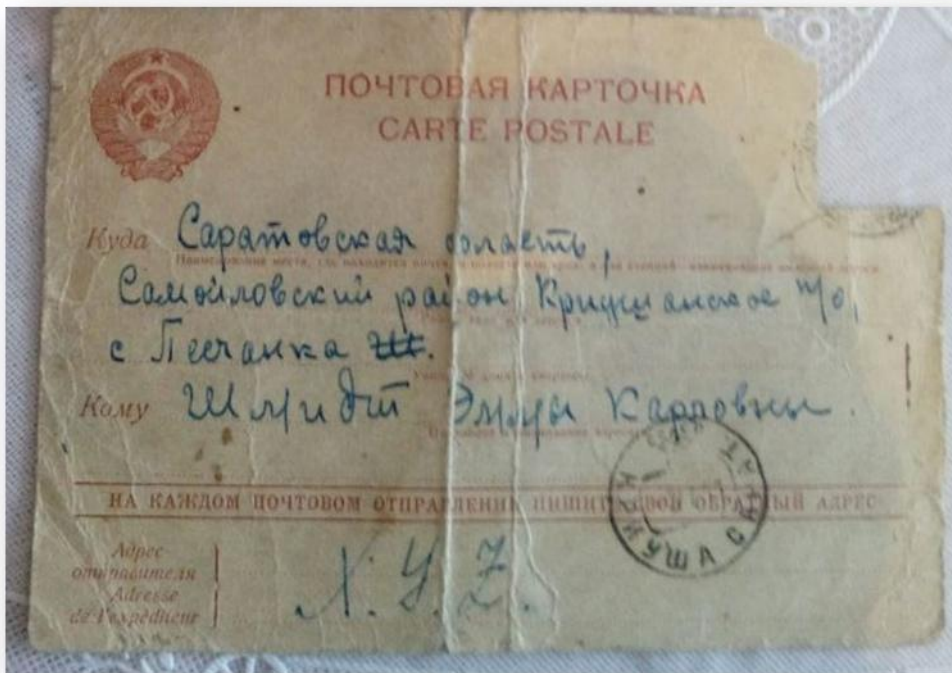 ПОЧТОВАЯ КАРТОЧКА
CARTE POSTALE
Куда Саратовская область,
Самойловский район Криушанское п/о,
с Песчанка
Кому Шмидт Эммы Карловны.
НА КАЖДОМ ПОЧТОВОМ ОТПРАВЛЕНИИ ПИШИТЕ СВОЙ ОБРАТНЫЙ АДРЕС
Адрес
отправителя
Adresse
de l'expéditeur
X. Y. Z.